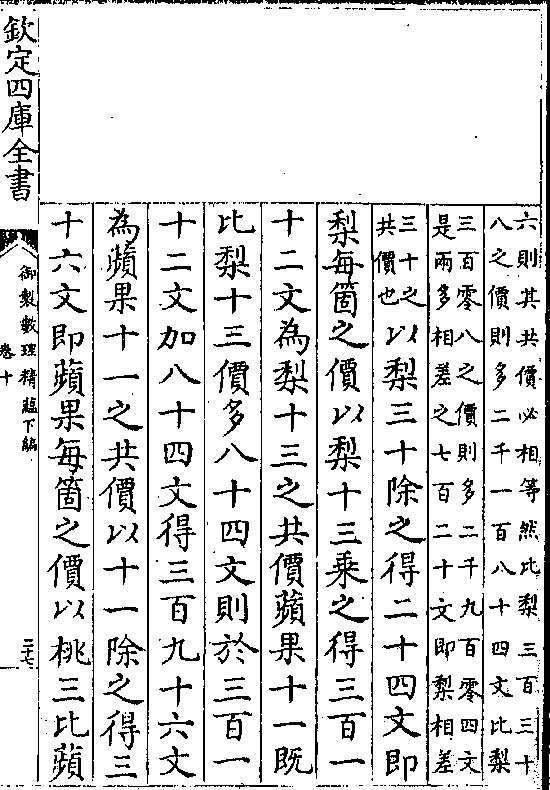 六則其共價必相等然比梨三百三十
八之價則多二千一百八十四文比梨
三百零八之價則多二千九百零四文
是兩多相差之七百二十文即梨相差
三十之
共價也以梨三十除之得二十四文即
梨每箇之價以梨十三乘之得三百一
十二文為梨十三之共價蘋果十一既
比梨十三價多八十四文則於三百一
十二文加八十四文得三百九十六文
為蘋果十一之共價以十一除之得三
十六文即蘋果每箇之價以桃三比蘋
欽定四庫全書
御製數理精蘊下編
卷十
二十七